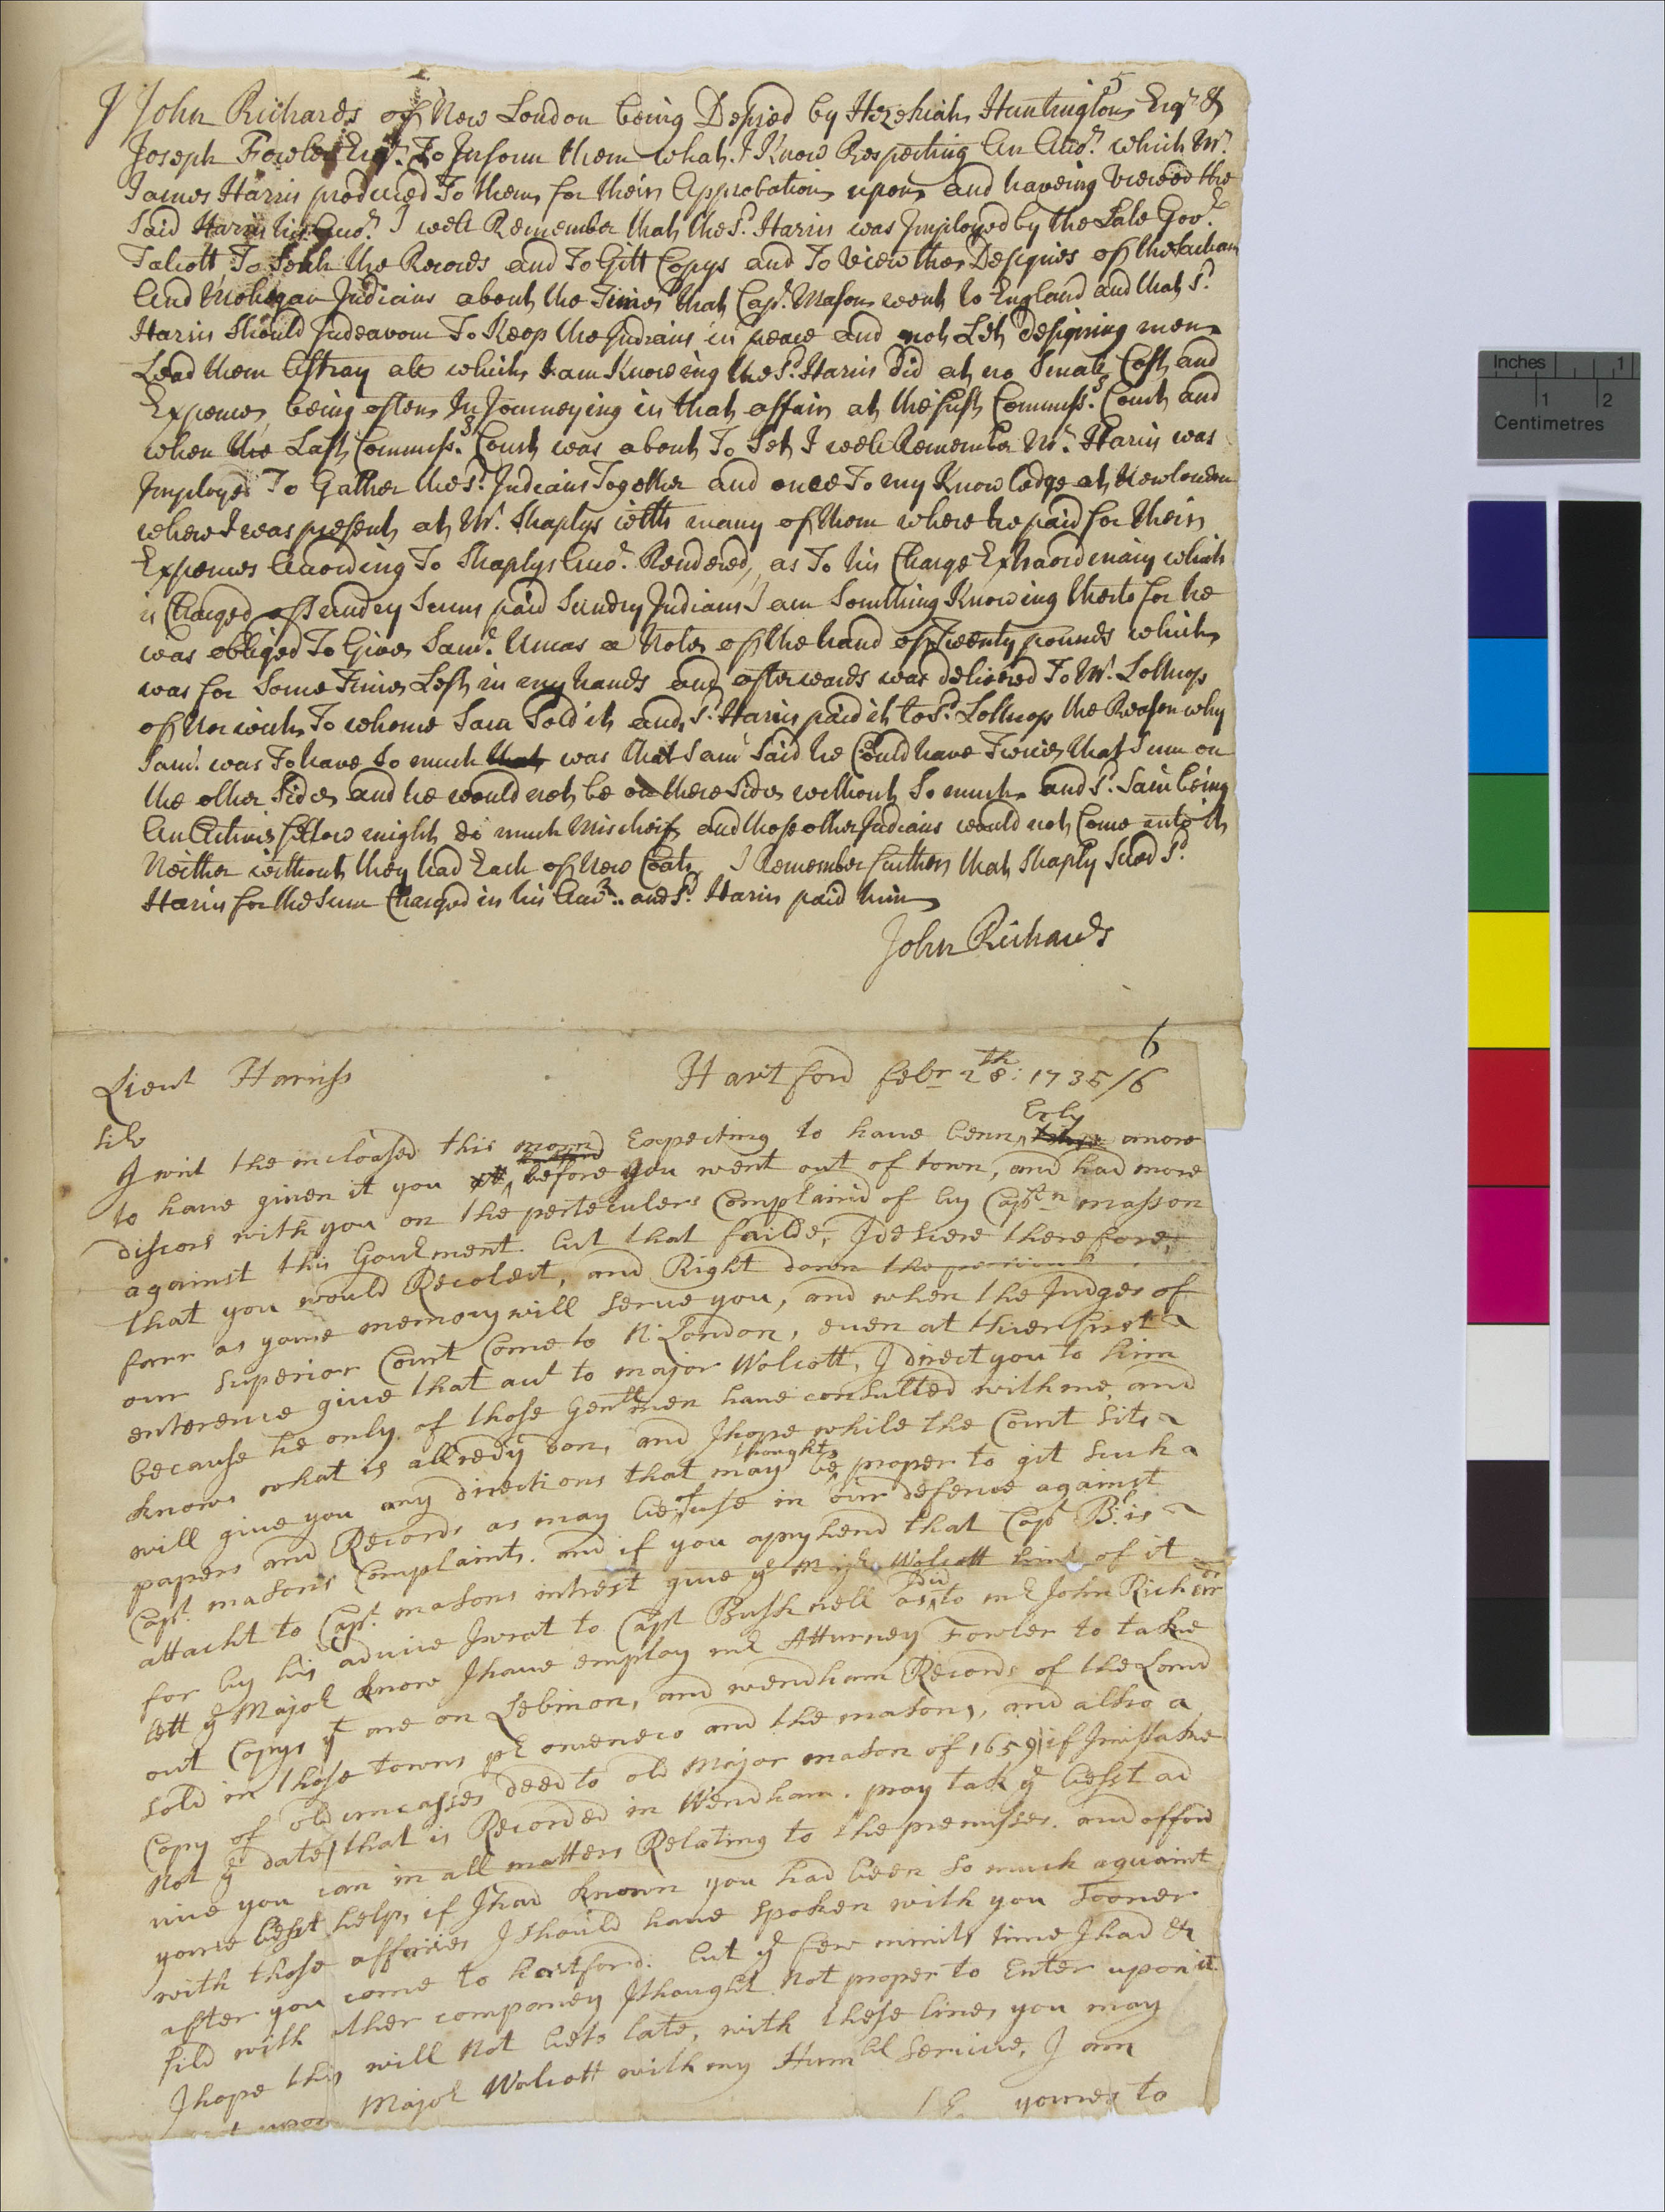 5
I John Richards of New London being Desired by Hezekiah Huntington Esqr. &
Joseph Fowler Esqr. To Inform them what I Know Respecting An Acco.t which Mr.
James Harris produced To them for their Approbation upon and haveing Viewed the
Said Harris his Acco.t I well Remember that the Sd. Harris was Imployed by the Late Gov.r
Talcott To Serch the Records and To Gitt Copys and To View the Designes of the Sachem
And Mohegan Indians about the Time that Capt. Mason went to England and that Sd.
Harris Should Indeavour To Keep the Indians in peace and not Let Designing men
Lead them Astray all which I am Knowing the Sd. Harris Did at no Small Cost and
Expences being often In Journeying in that affair at the first Commiss.s Court and
when the Last Commiss.s Court was about To Set I well Remember Mr. Harris was
Imployed To Gather the Sd. Indians Together and once To my Knowledge at Newlondon
where I was present at Mr. Shaplys with many of them where he paid for their
Expences Acording To Shaplys Acco.t Rendered, as To his Charge Extraordinary which
is Charged of Sundry Sums paid Sundry Indians I am Somthing Knowing therto for he
was obliged To Give Saml. Uncas a Note of the hand of Twenty pounds which
was for Some Time Left in my hands and afterwards was delivered To Mr. Lothrop
of Norwich To whome Sam Sold it and Sd. Harris paid it to Sd. Lothrop the Reason why
Saml. was To have So much that was that Sam Said he Could have Twice that Sum on
the other Side and he would not be on there Side without So much and Sd. Sam being
An Active fellow might do much Mischeif and those other Indians would not Come into it
Neither without they had Each of New Coats I Remember further that Shaply Sued Sd.
Harris for the Sum Charged in his Acco.t and Sd. Harris paid him
John Richards
6
Lieut Harriss Hartford febr 28th: 1735/6
Sir
Erly
I writ the incloased this mornd Expecting to have benn amore
to have given it you before you went out of town, and had more
discors with you on the perteculers Complaind of by Captn masson
against this Goverment. but that faild, I desiere therefore,
that you would Recolect, and Right down the
farr as youre memory will serve you, and when the Judges of
our Superior Court Come to N: London, even at thier first
enterence give that out to major Wolcott, I direct you to him
because he only of those Gentlemen have consulted with me, and
knows what is allredy don, and I hope while the Court sits
will give you any directions that may be thought proper to git such
papers and Records as may be of use in our defence against
Capt. masons Complaints. and if you apryhend that Capt B:l is
attacht to Capt. masons intrest give ye Majr Wolcott hint of it
for by his advice I wrot to Capt Bushnell as I did to mr John Richerds
lett ye Major know I have employ mr Atturney Fowler to take
out Copys yt are on Lebinon, and wendham Records of the Land
sold in those towns pr omeneco and the masons, and allso a
Copy of old uncasses deed to old Major mason of 1659 (if I mistake
Not ye date) that is Recorded in Wendham. pray tak ye besst ad
vice you can in all matters Relating to the premisses. and afford
youre besst help, if I had known you had been so much aquaint
with those affaires I should have spoken with you sooner
after you come to hartford. but ye few minits time I had &
fild with other companey I thought Not proper to Enter upon it.
I hope this will Not be to late, with these lines you may
upon Major Wolcott with my Humbl Service, I am
youres to
Inches 1
1 2
Centimetres